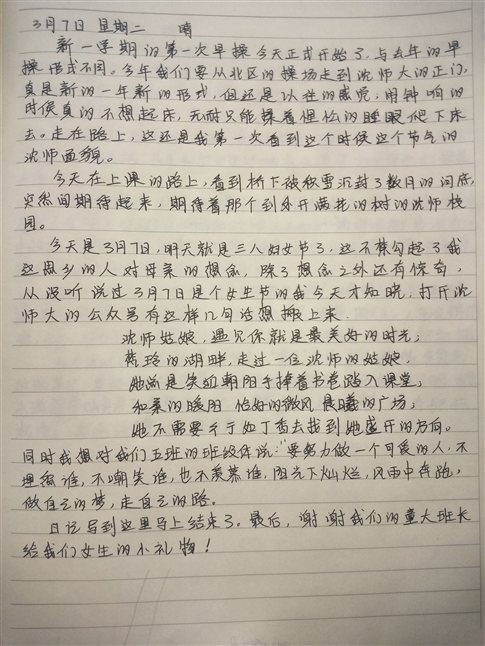 3月7日 星期二 晴
新一学期的第一次早操今天正式开始了,与去年的早
操形式不同。今年我们要从北区的操场走到沈师大的正门,
真是新的一年新的形式,但还是以往的感觉,闹钟响的
时候真的不想起床,无耐只能揉着惺忪的睡眼爬下床
去。走在路上,这还是我第一次看到这个时候这个节气的
沈师面貌。
今天在上课的路上,看到桥下被积雪沉封了数月的河底,
突然间期待起来,期待着那个到处开满花的树的沈师校
园。
今天是3月7日,明天就是三八妇女节了,这不禁勾起了我
这思乡的人对母亲的想念,除了想念之外还有惊奇,
从没听说过3月7日是个女生节的我今天才知晓,打开沈
师大的公众号有这样几句话想搬上来.
沈师姑娘,遇见你就是最美好的时光;
的湖畔,走过一位沈师的姑娘,
她总是笑迎朝阳手捧着书卷踏入课堂;
和柔的暖阳 恰好的微风 晨曦的广场;
她不需要千千如丁香去找到她盛开的方向。
同时我想对我们五班的班级体说:"要努力做一个可爱的人,不
埋怨谁,不嘲笑谁,也不羡慕谁,阳光下灿烂,风雨中奔跑,
做自己的梦,走自己的路。
日记写到这里马上结束了。最后,谢谢我们的童大班长
给我们女生的小礼物!